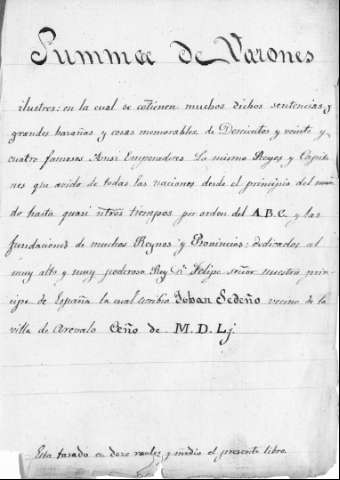 Summa de Varones
ilustres: en la cual se cōtienen muchos dichos sentencias y
grandes hazañas y cosas memorables de Doscientos y veinte y
cuatro famosos. Ansi Emperadores como Reyes y Capita
nes que avido de todas las naciones desde el principio del mun
do hasta quasi nr̃os tiempos por orden del A. B. C. y las
fundaciones de muchos Reynos y Provincias: dedicados al
muy alto y muy poderoso Rey Dⁿ Felipe señor nuestro prin
cipe de España la cual scribio Johan Sedeño vecino de la
villa de Arevalo Año de M. D. Lj.
Esta tasado en doze reales y medio el presente libro.